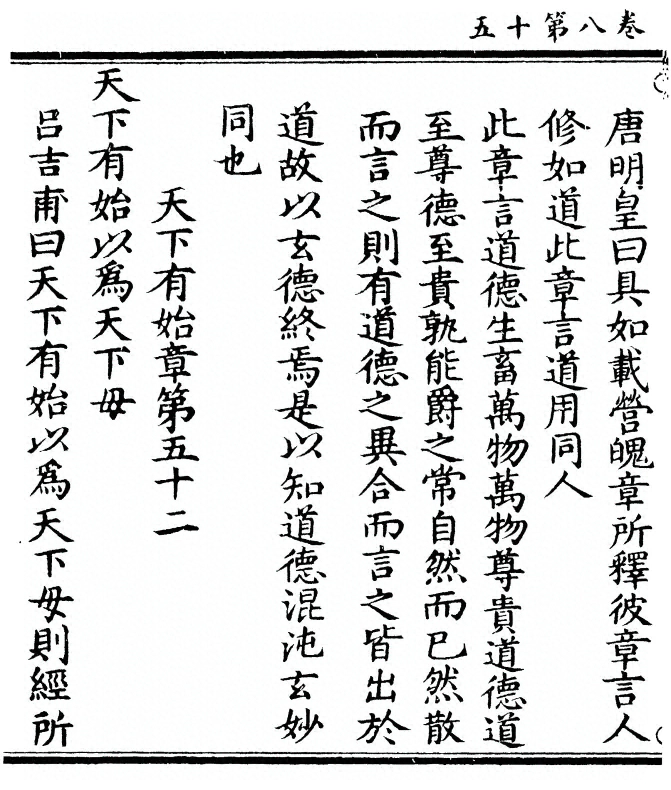 卷八第十五
唐明皇曰具如載營魄章所釋彼章言人
修如道此章言道用同人
此章言道德生畜萬物萬物尊貴道德道
至尊德至貴孰能爵之常自然而已然散
而言之則有道德之異合而言之皆出於
道故以玄德終焉是以知道德混沌玄妙
同也
天下有始章第五十二
天下有始以爲天下母
呂吉甫曰天下有始以爲天下母則經所